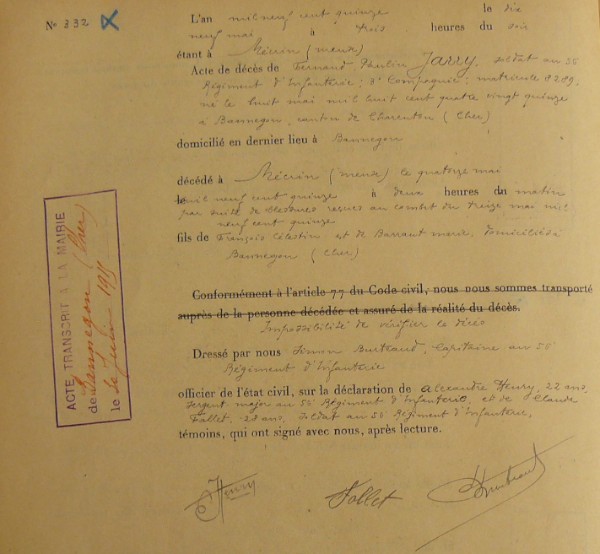 N° 332
L'an mil neuf cent quinze le dix
neuf mai à trois heures du soir
étant à Mécrin (meuse)
Acte de décès de Fernand Paulin Jarry, soldat au 56
Régiment d'Infanterie; 8e Compagnie; matricule 8289;
né le huit mai mil huit cent quatre vingt quinze
à Bannegon, canton de Charenton (Cher)
domicilié en dernier lieu à Bannegon
décédé à Mécrin (meuse) le quatorze mai
mil neuf cent quinze à deux heures du matin
par suite de blessures reçues au combat du treize mai mil
neuf cent quinze
fils de François Célestin et de Barraut marie, domiciliés à
Bannegon (Cher)
Conformément à l'article 77 du Code civil, nous nous sommes transporté
auprès de la personne décédée et assuré de la réalité du décès.
Impossibilité de vérifier le décès
Dressé par nous Simon Burtraud, Capitaine au 56
Régiment d'Infanterie
officier de l'état civil, sur la déclaration de Alexandre Henry, 22 ans,
Sergent major au 56 Régiment d'Infanterie et de Claude
Follet, ans, soldat au 56 Régiment d'Infanterie,
témoins, qui ont signé avec nous, après lecture.
Henry
Follet
ACTE TRANSCRIT A LA MAIRIE
de Bannegon (Cher)
le Juin 1915